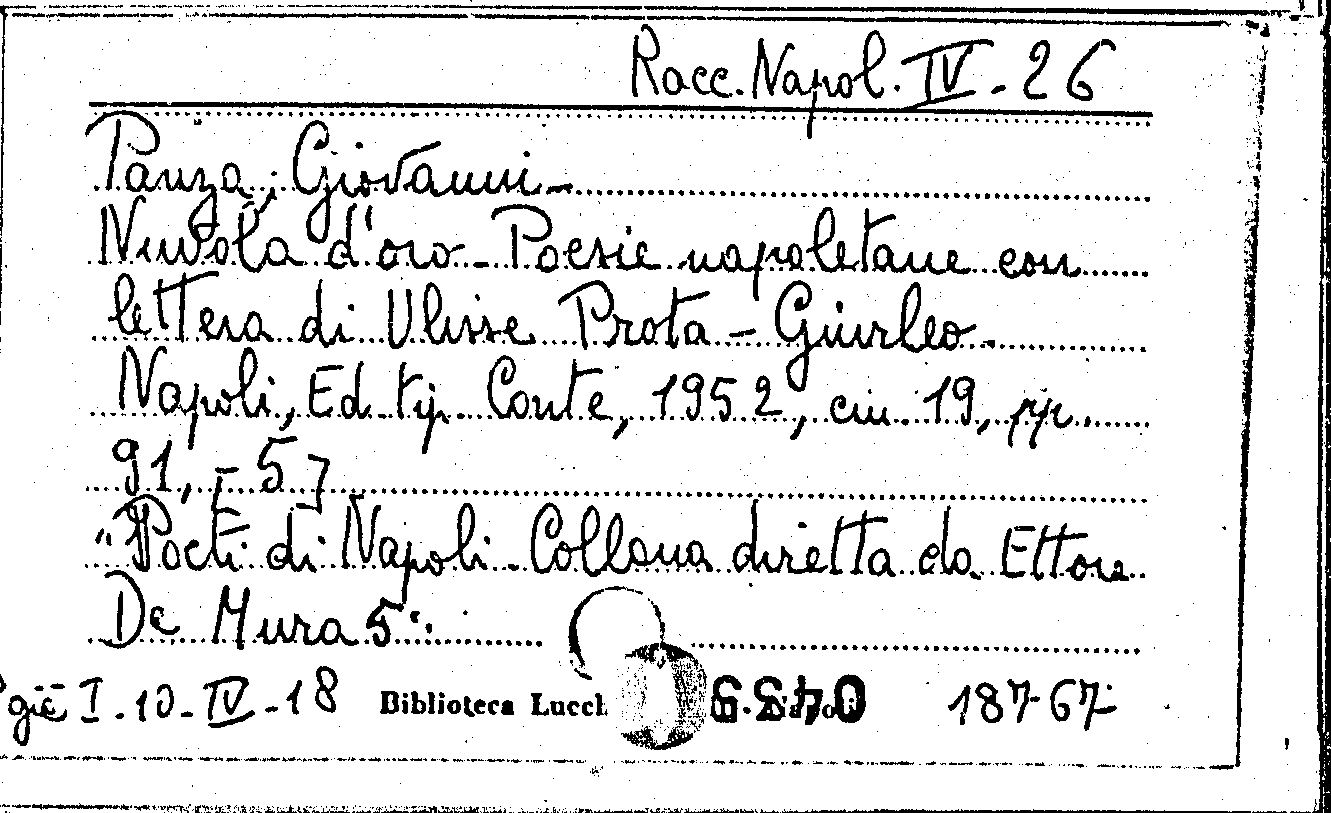 Racc. Napol. IV - 26
Panza, Giovanni -
Nuvola d'oro - Poesie napoletane con
lettera di Ulisse Prota - Giurleo -
Napoli, Ed. tip. Conte, 1952, cm. 19, pp.
91, [5]
"Poeti di Napoli. Collana diretta da Ettore
De Mura 5".
già I - 10 - IV - 18 Biblioteca Lucch 187-67